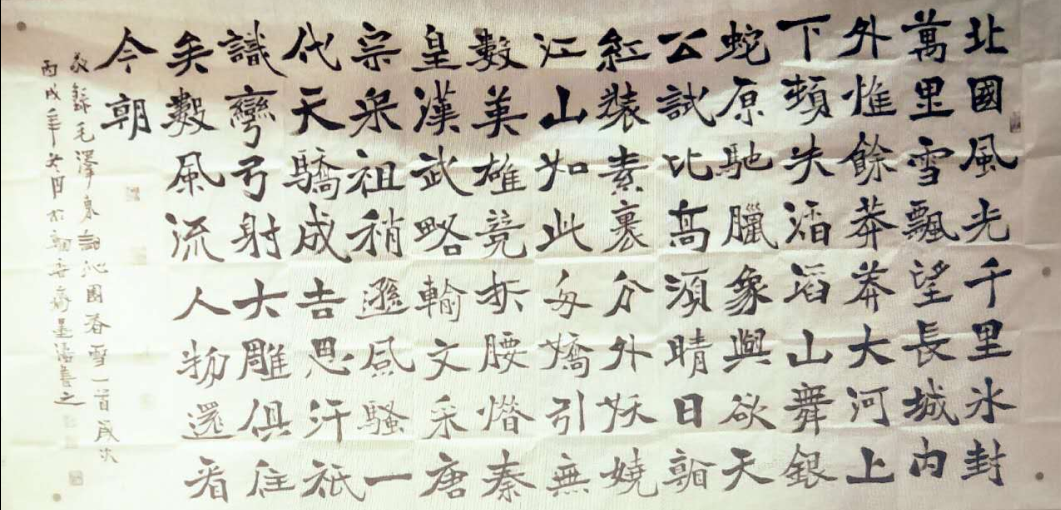 北國風光千里冰封
萬里雪飄望長城內
外惟餘莽莽大河上
下頓失滔滔山舞銀
蛇原馳臘象與欲天
公試比高須晴日
紅裝素裹分外妖嬈
江山如此多嬌引無
數英雄競折腰惜秦
皇漢武略輸文采唐
宗宋祖稍遜風騷一
代天驕成吉思汗祇
識彎弓射大雕俱往
矣數風流人物還看
今朝
敬錄毛澤東詞沁園春雪一首歲次
丙戌年冬月於齋書之